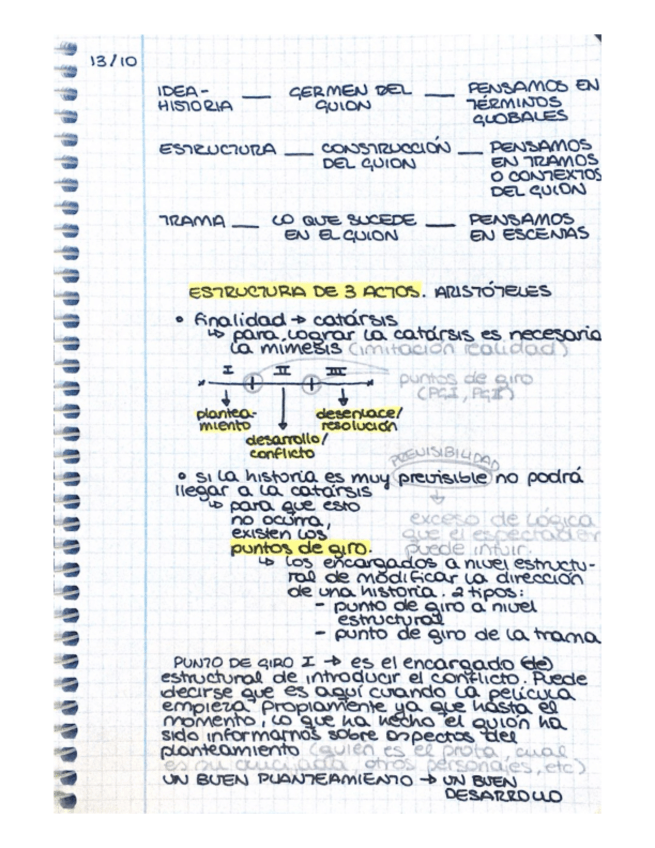 13/10
IDEA- — GERMEN DEL — PENSAMOS EN
HISTORIA GUION TÉRMINOS
GLOBALES
ESTRUCTURA — CONSTRUCCIÓN — PENSAMOS
DEL GUION EN TRAMOS
O CONTEXTOS
DEL GUION
TRAMA — LO QUE SUCEDE — PENSAMOS
EN EL GUION EN ESCENAS
ESTRUCTURA DE 3 ACTOS. ARISTÓTELES
• finalidad → catársis
↳ para lograr la catársis es necesaria
la mimesis (imitación realidad)
I II III
puntos de giro
(PGI, PGII)
plantea-
miento
desarrollo/
conflicto
desenlace/
resolución
PREVISIBILIDAD
• si la historia es muy previsible no podrá
llegar a la catársis
↳ para que esto
no ocurra,
existen los
puntos de giro.
exceso de lógica
que el espectador
puede intuir.
↳ los encargados a nivel estructu-
ral de modificar la dirección
de una historia. 2 tipos:
- punto de giro a nivel
estructural
- punto de giro de la trama
PUNTO DE GIRO I → es el encargado (de)
estructural de introducir el conflicto. Puede
decirse que es aquí cuando la película
empieza propiamente ya que hasta el
momento, lo que ha hecho el guión ha
sido informarnos sobre aspectos del
planteamiento (quien es el prota, cual
es su ciudad, otros personajes, etc)
UN BUEN PLANTEAMIENTO → UN BUEN
DESARROLLO